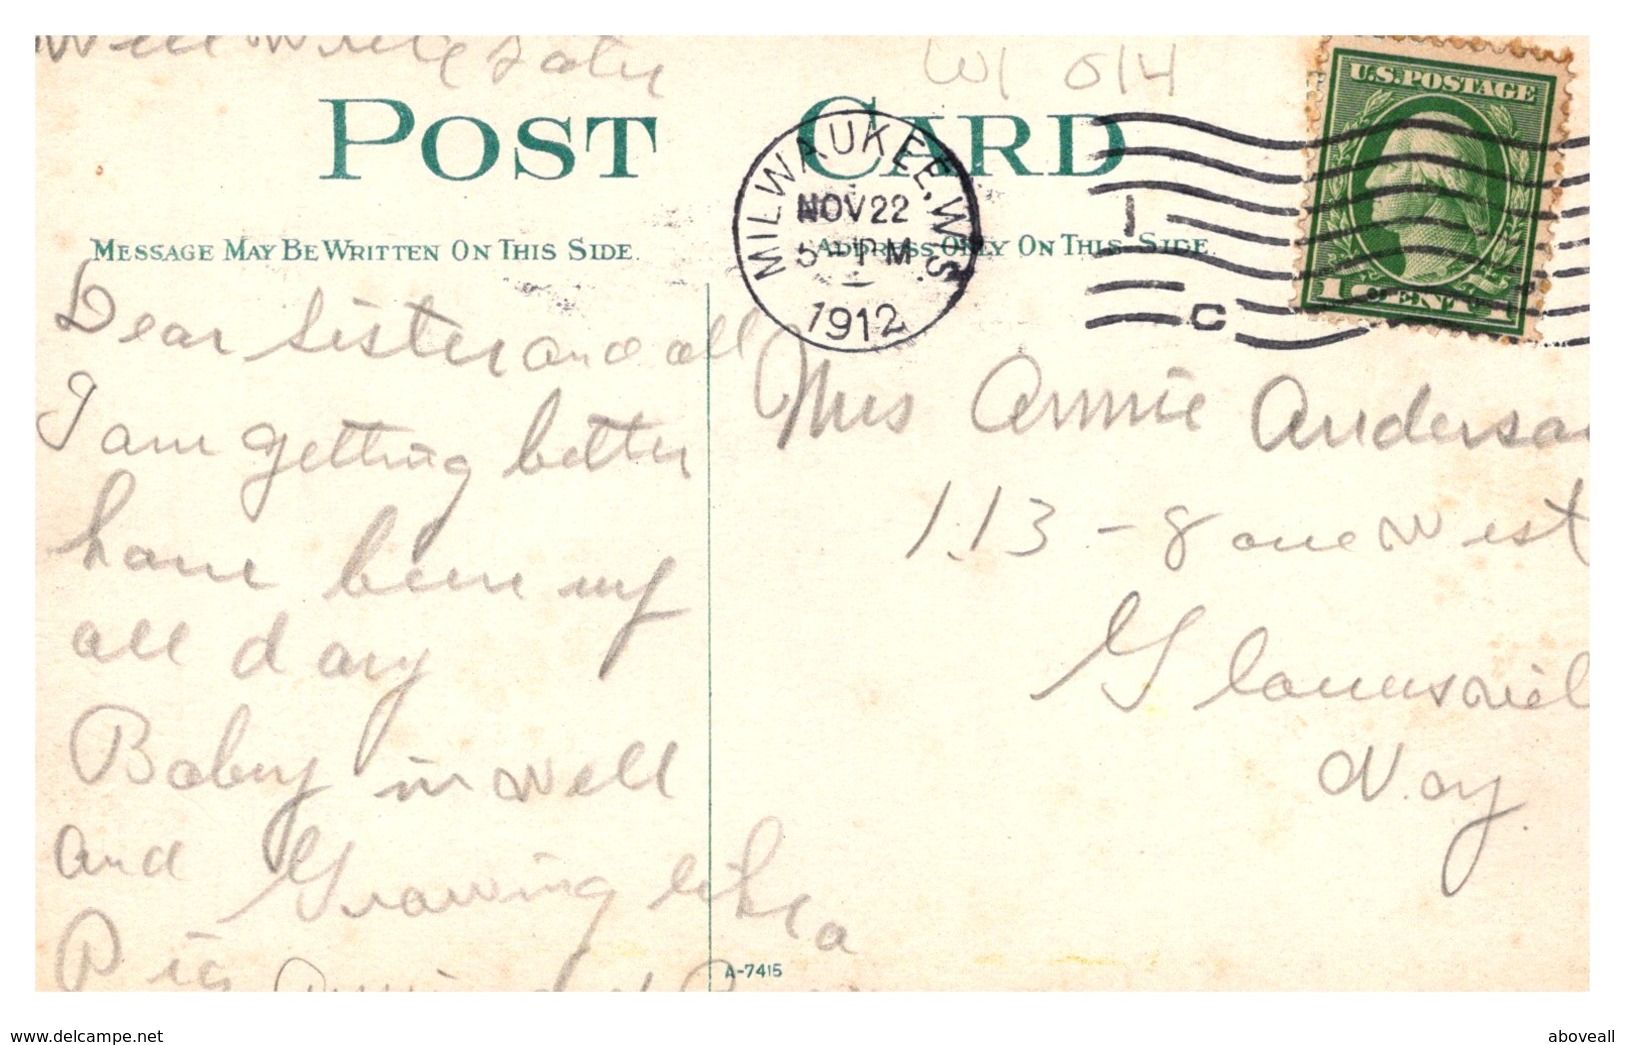 Will write
WI 014
POST CARD
U.S. POSTAGE
1 CENT 1
MILWAUKEE, WIS.
NOV 22
5 - PM
1912
1
C
MESSAGE MAY BE WRITTEN ON THIS SIDE.
ADDRESS ONLY ON THIS SIDE.
Dear sister and all
I am getting better
have been up
all day
Baby is well
and Growing like a
Pig
Mrs Annie Anderson
113 - 8 ave West
N.Y
A-7415
www.delcampe.net
aboveall